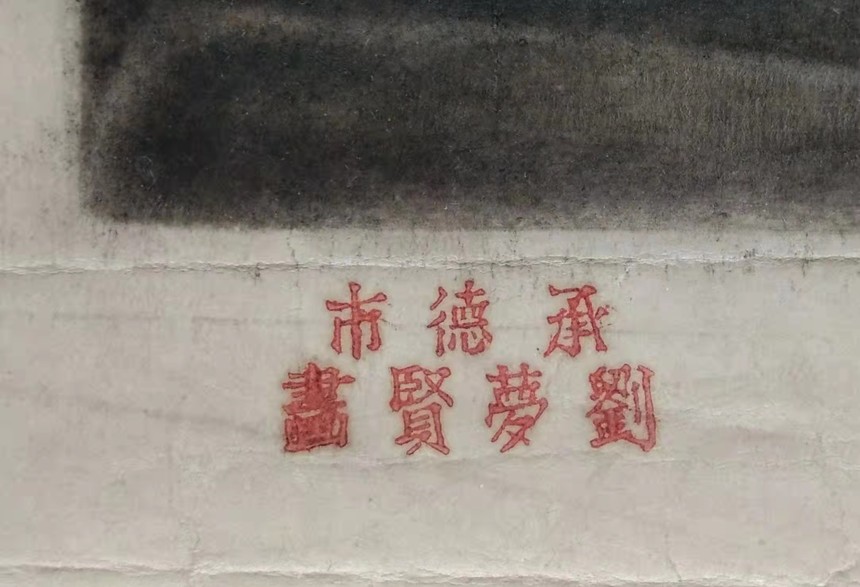 承德市
劉夢賢畫